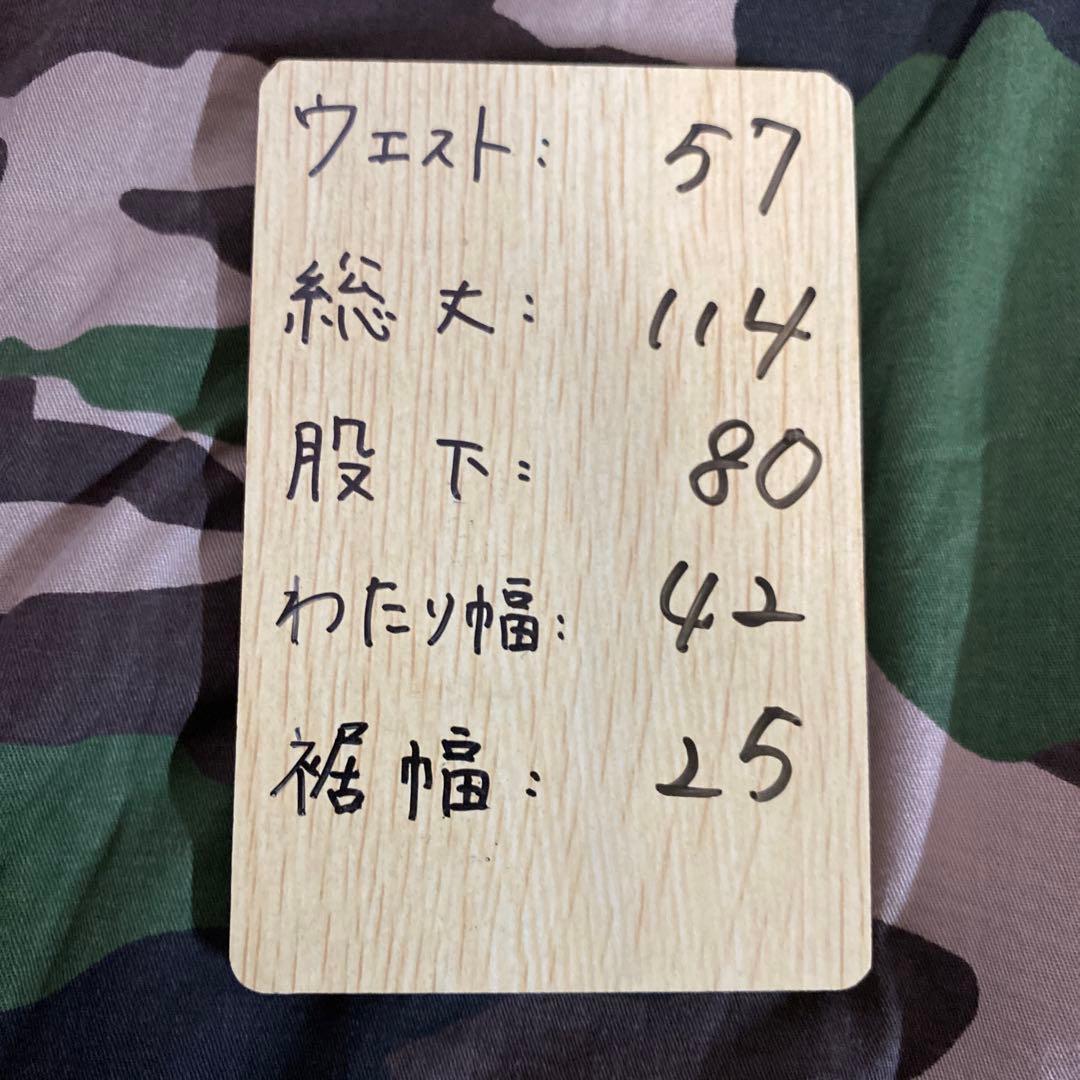 ウエスト: 57
総丈: 114
股下: 80
わたり幅: 42
裾幅: 25